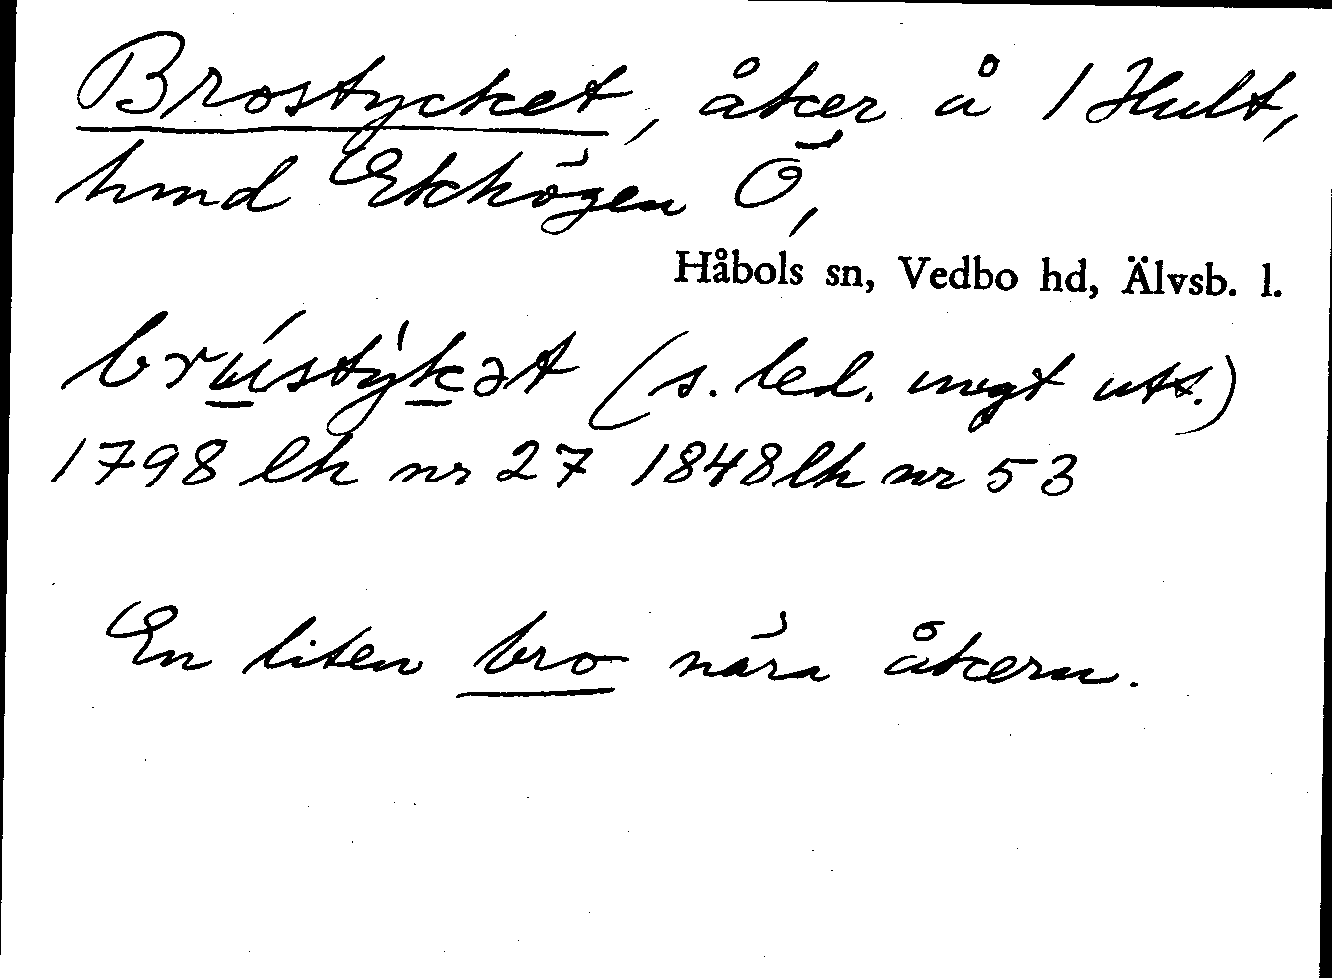 Brostycket, åker å 1 Hult,
hmd Ekhögen Ö,
Håbols sn, Vedbo hd, Älvsb. l.
brústýkət (s. led. mgt utt.)
1798 lh nr 27 1848 lh nr 53
En liten bro nära åkern.